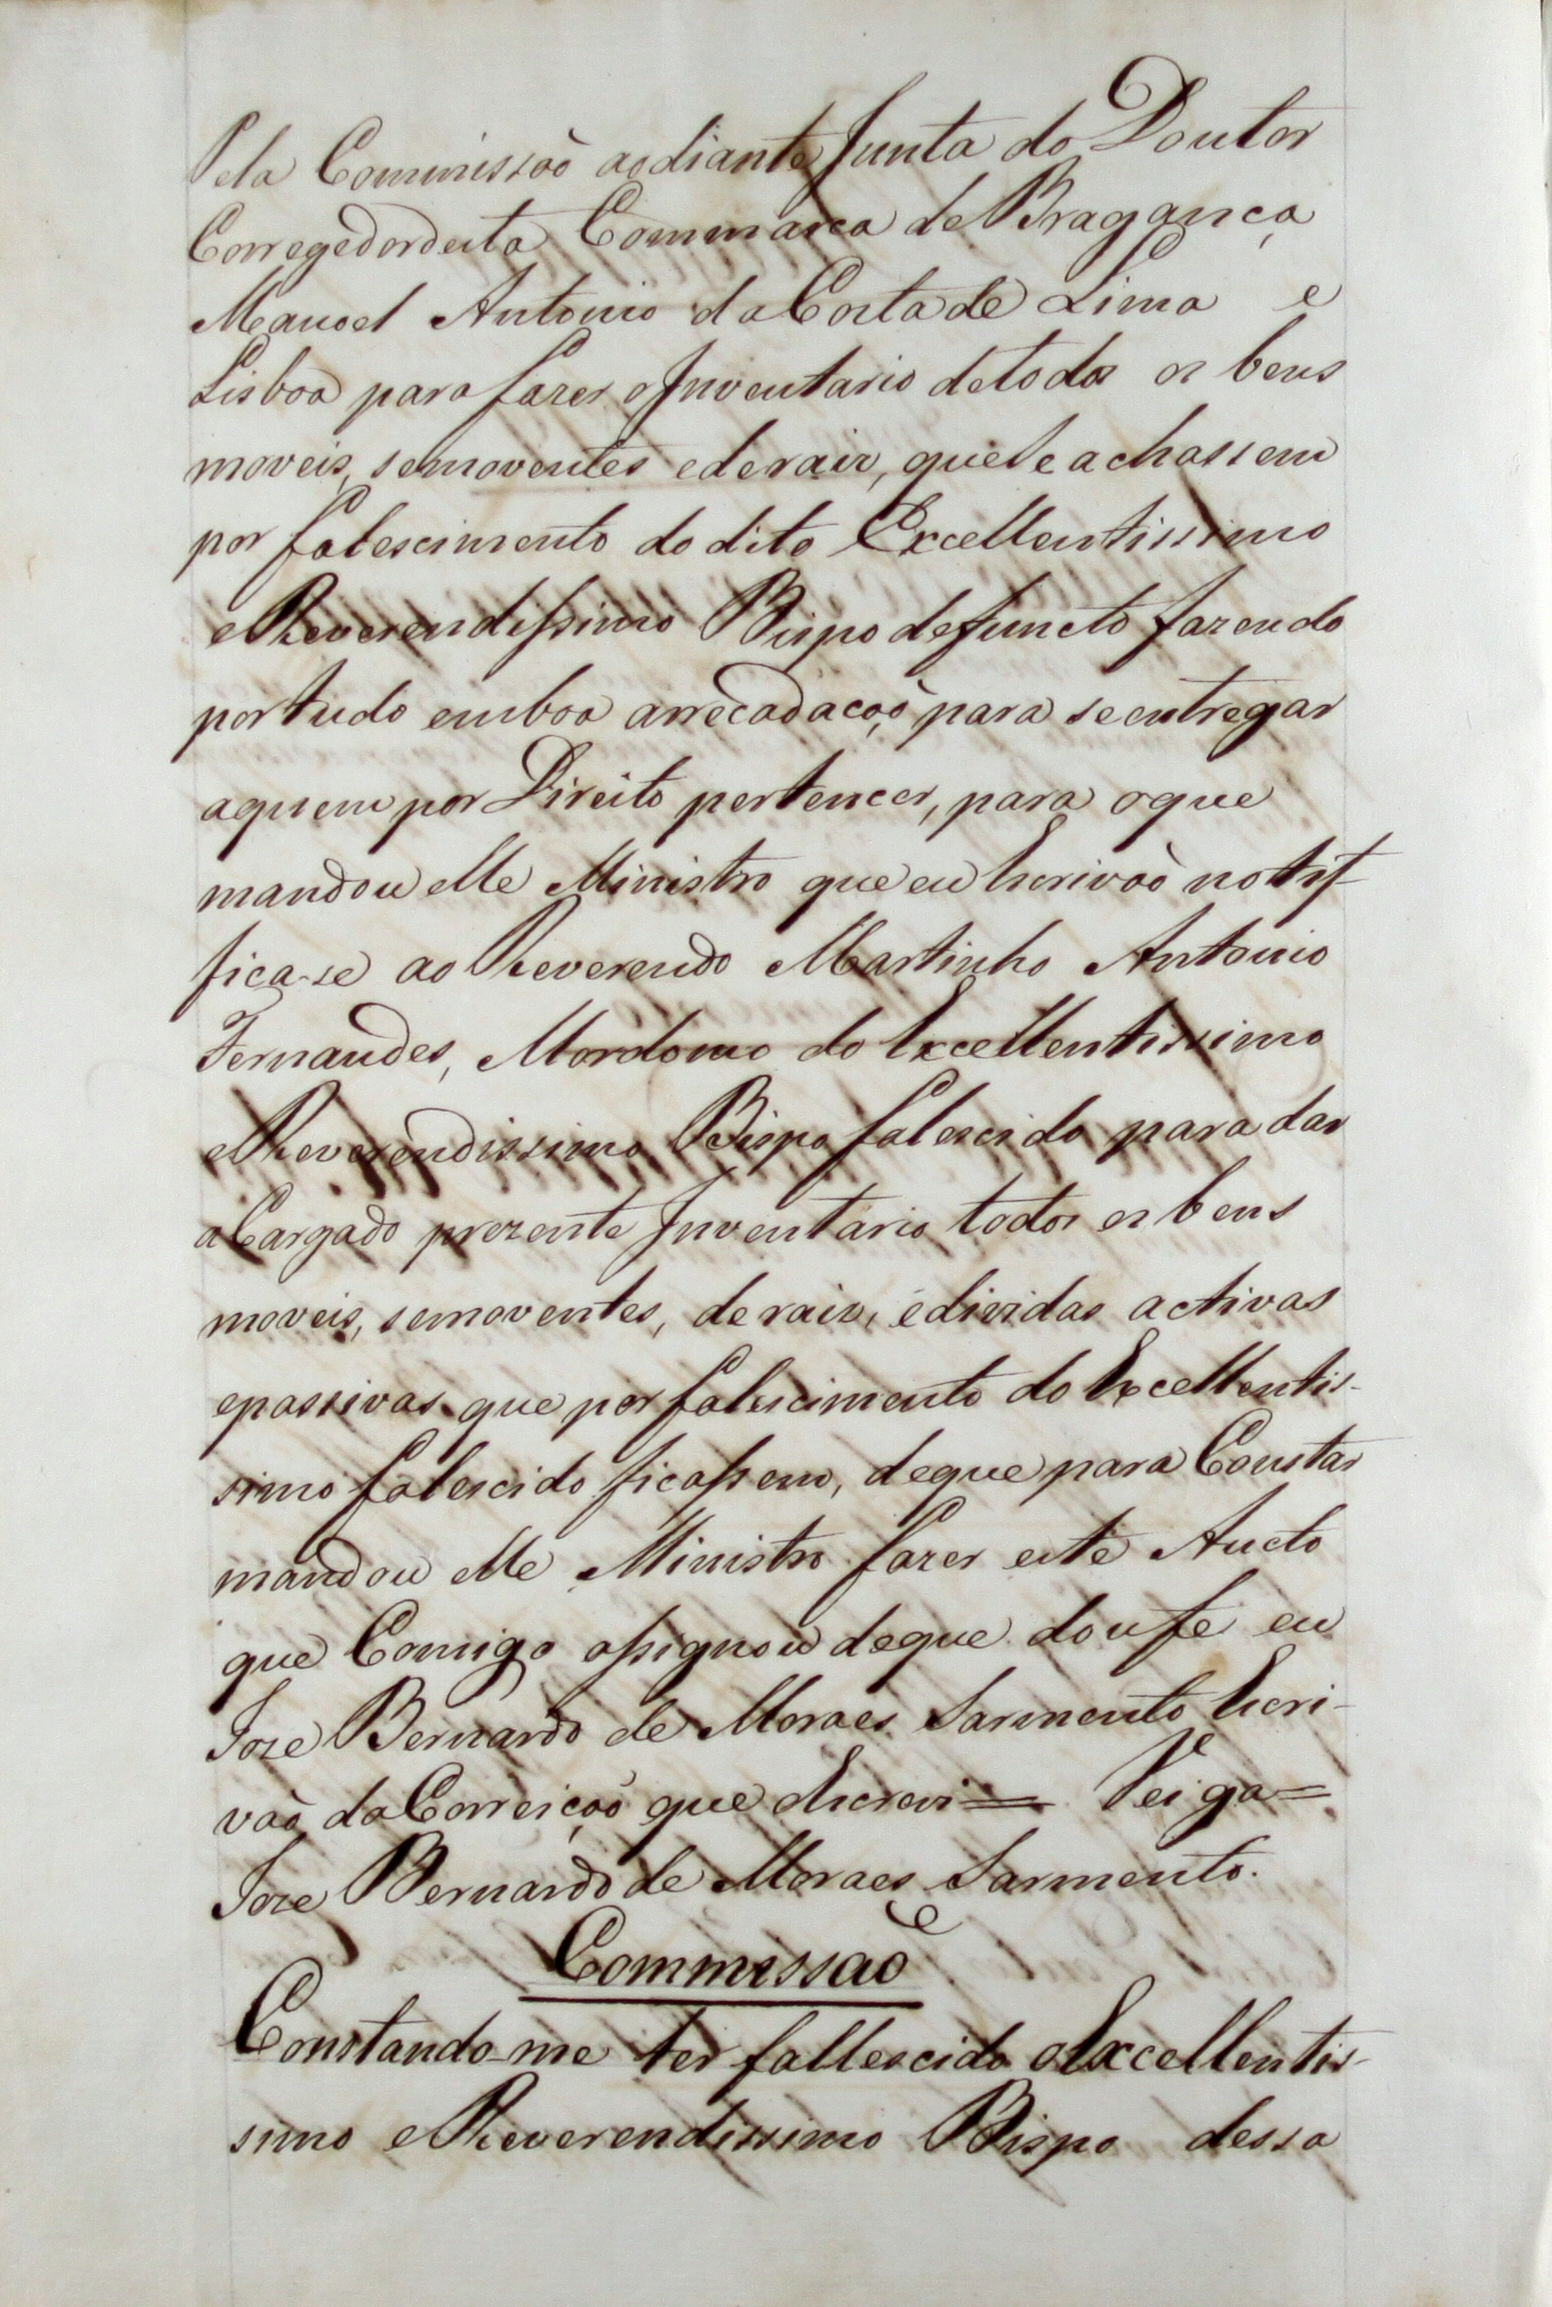 Pela Commissaò aodiante Junta do Doutor
Corregedordesta Commarca de Bragança
Manoel Antonio da Costa de Lima e
Lisboa para fazer o Inventario detodos os bens
moveis, semoventes ederaiz, quese achassem
por falescimento do dito Excellentissimo
e Reverendissimo Bispo defuncto fazendo
por tudo emboa arrecadacaò, para se entregar
aquem por Direito pertencer, para oque
mandou elle Ministro que eu Escrivaò notif-
fica-se ao Reverendo Martinho Antonio
Fernandes, Mordomo do Excellentissimo
e Reverendissimo Bispo falescido para dar
a Cargado prezente Inventario todos os bens
moveis, semoventes, de raiz, edividas activas
epassivas que por falescimento do Excellentis-
simo falescido ficassem, deque para Constar
mandou elle Ministro fazer este Aucto
que Comigo assignou deque dou fe eu
Joze Bernardo de Moraes Sarmento Escri-
vaò da Correiçaò que Escrevi = Veiga =
Joze Bernardo de Moraes Sarmento.
Commessaõ
Constando-me ter fallescido o Excellentis-
simo e Reverendissimo Bispo dessa